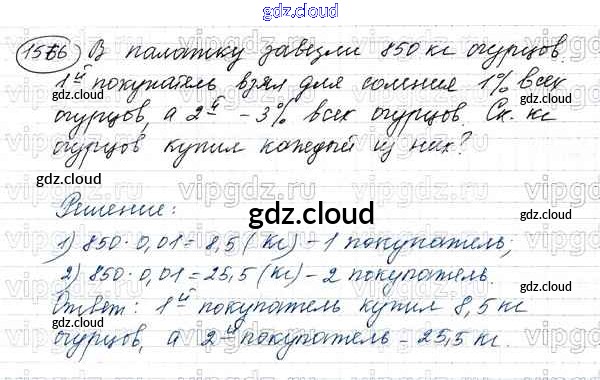 gdz.cloud
1566 В палатку завезли 850 кг огурцов.
1й покупатель взял для соления 1% всех
огурцов, а 2й – 3% всех огурцов. Ск. кг
огурцов купил каждый из них?
gdz.cloud
gdz.cloud
gdz.cloud
gdz.cloud
vipgdz.ru
vipgdz.ru
vipgdz.ru
Решение:
gdz.cloud
1) 850·0,01=8,5 (кг) – 1 покупатель;
2) 850·0,01=25,5 (кг) – 2 покупатель.
Ответ: 1й покупатель купил 8,5 кг
огурцов, а 2й покупатель – 25,5 кг.
gdz.cloud
gdz.cloud
gdz.cloud
gdz.cloud